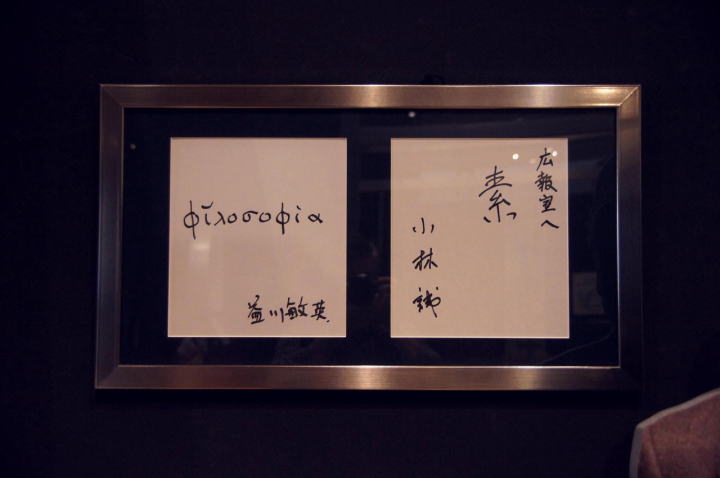 φίλοσοφία
益川敏英
広報室へ
素
小林誠